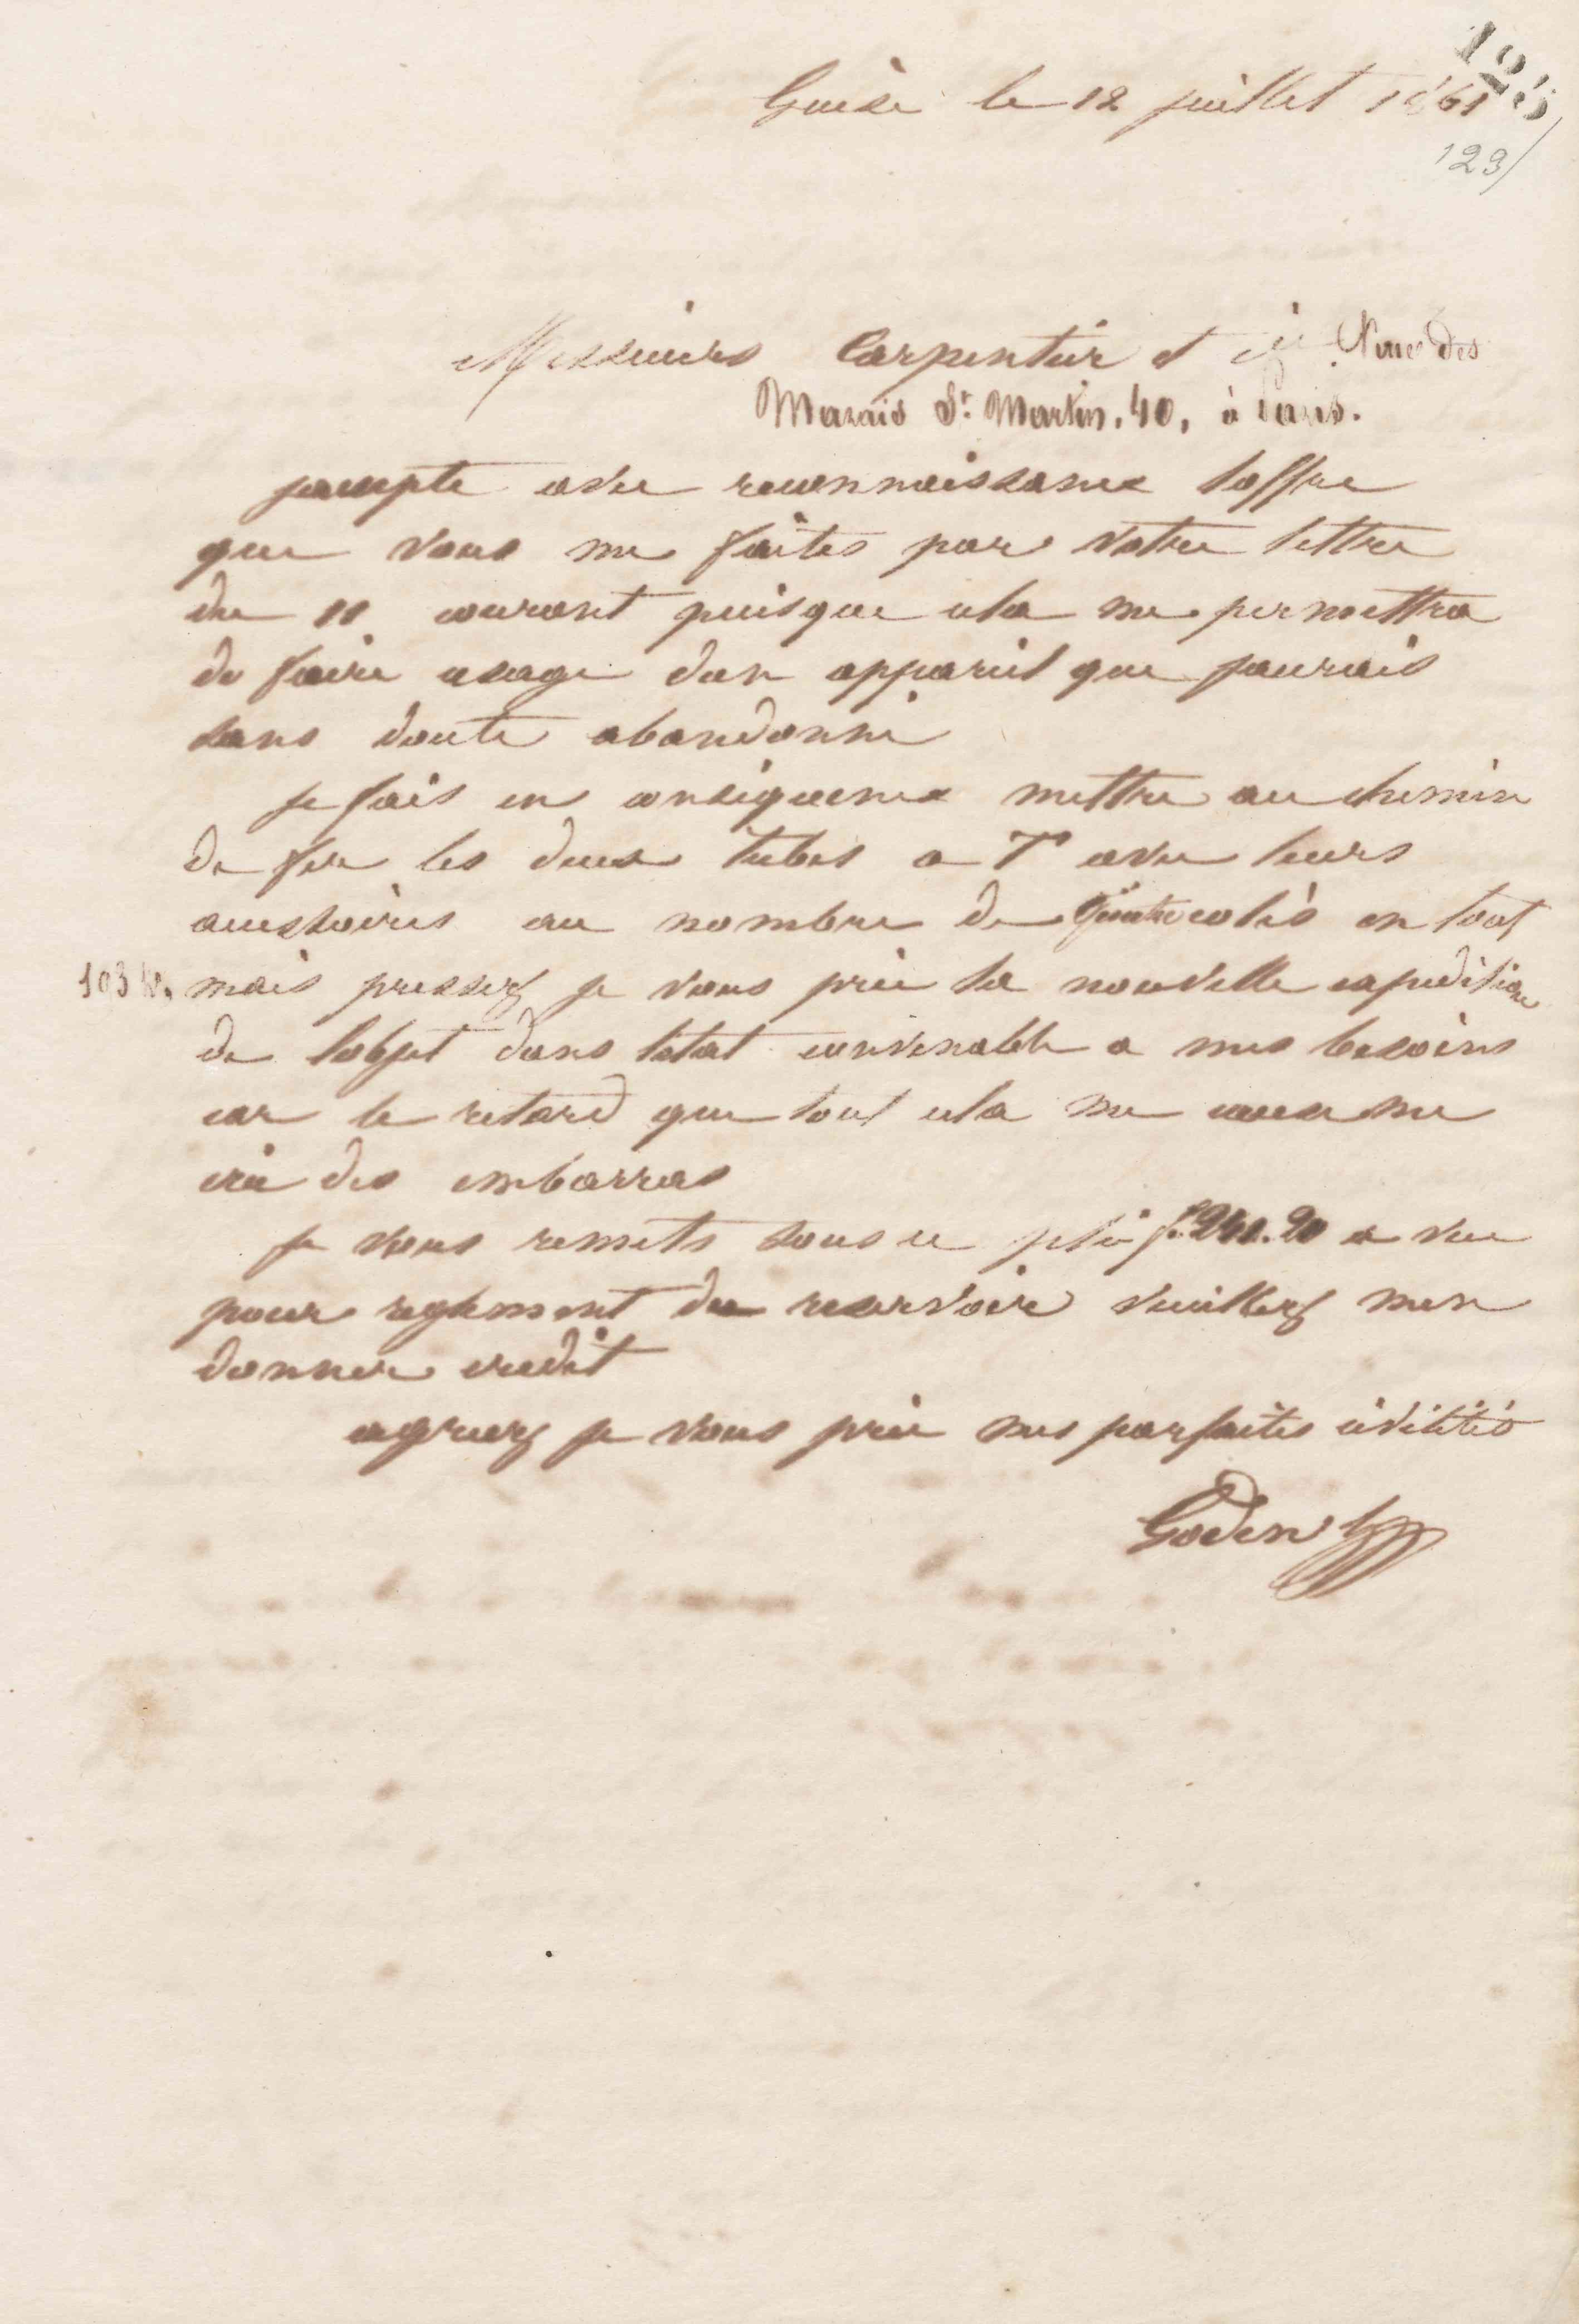 123
Guise le 12 juillet 1861
123/
Messieurs Carpentier et Cie Rue des
Marais St. Martin. 40, à Paris.
jaccepte avec reconnaissance loffre
que vous me faites par votre lettre
du 11 courant puisque cela me permettra
de faire usage dun appareil que jaurais
sans doute abandonné
je fais en conséquence mettre au chemin
de fer les deux tubes a T avec leurs
accessoires au nombre de quatre colis en tout
103 k. mais pressez je vous prie la nouvelle expedition
de lobjet dans letat convenable a mes besoins
car le retard que tout cela me cause me
crée des embarras
je vous remets sous ce pli f. 240.20 a vue
pour reglement du reservoir veuillez men
donner credit
agreez je vous prie mes parfaites civilités
Godin